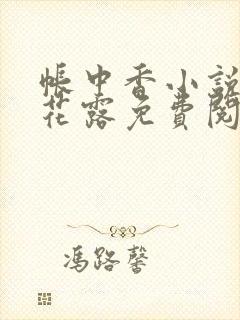 帳中香小說
花露免費閱
馮路馨